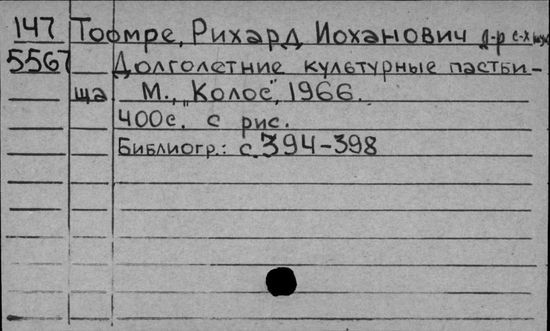 147 Тоомре, Рихард Иоханович д-р с-х наук
5567 Долголетние культурные пастби-
ща М., „Колос", 1966.
400с. с рис.
Библиогр.: с. 394-398